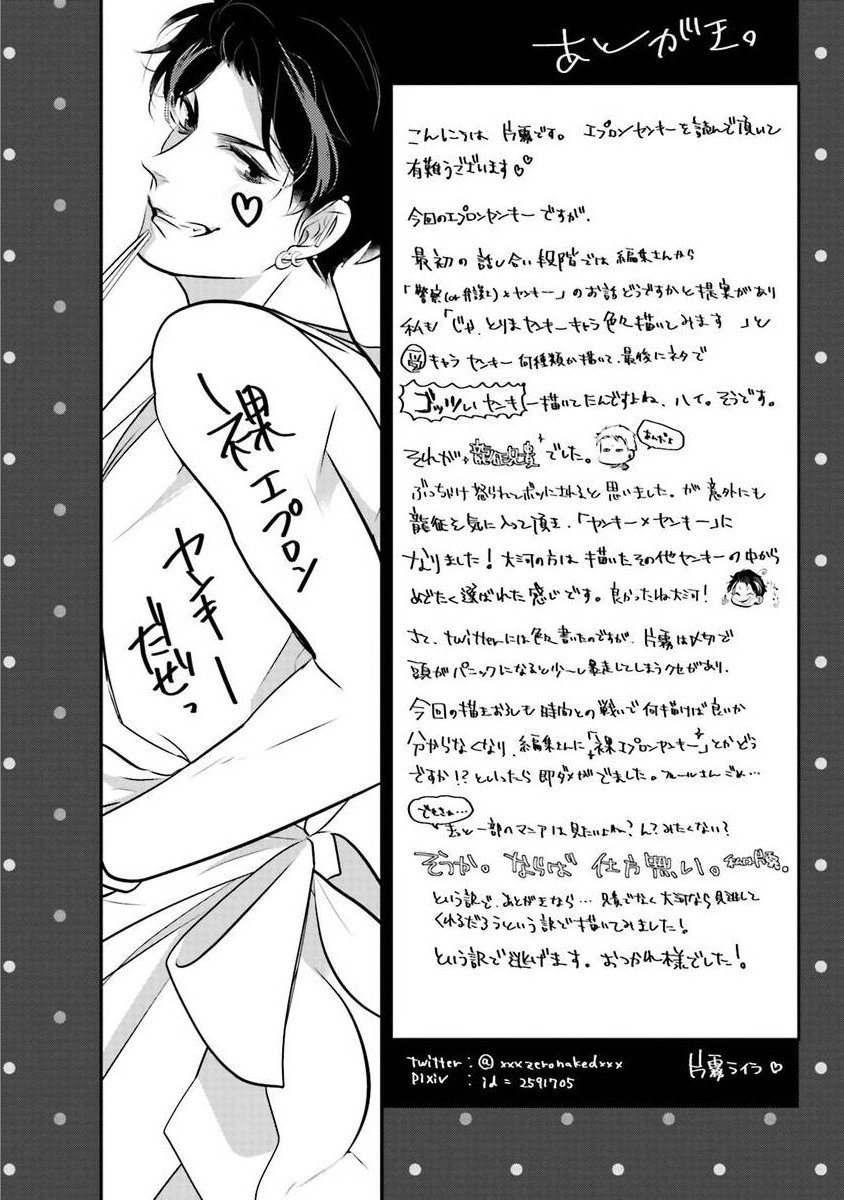 あとがき。
こんにちは 片霧です。 エプロンヤンキーを読んで頂いて
有難うございます♡♡
今回のエプロンヤンキーですが、
最初の話し合い段階では編集さんから
「警察(or弁護士)×ヤンキー」のお話どうですかと提案があり
私も「じゃ、とりまヤンキーキャラ色々描いてみます」と
受キャラヤンキー何種類か描いて、最後にネタで
ゴッツいヤンキー描いてたんですよね、ハイ。そうです。
それが龍征兄貴でした。
あんだよ
ぶっちゃけ怒られボツにされると思いました。が意外にも
龍征を気に入って頂き、「ヤンキー×ヤンキー」に
なりました!大河の方は描いたその他ヤンキーの中から
めでたく選ばれた感じです。良かったね大河!
さて、twitterには色々書いたのですが、片霧は〆切で
頭がパニックになると少し暴走してしまうクセがあり、
今回の描きおろしも時間との戦いで何描けば良いか
分からなくなり、編集さんに「裸エプロンヤンキー」とかどう
ですか!?といったら即ダメがでました。
でもさぁ…
きっと一部のマニアは見たいよね?ん?みたくない?
そうか。ならば仕方無い。
という訳で、あとがきなら…
でなく大河なら見逃して
くれるだろうという訳で描いてみました!
という訳で逃げます。おつかれ様でした!
twitter : @xxxzeronakedxxx
pixiv : id = 2591705
片霧ライラ♡
裸エプロン
ヤンキー
だぜっ